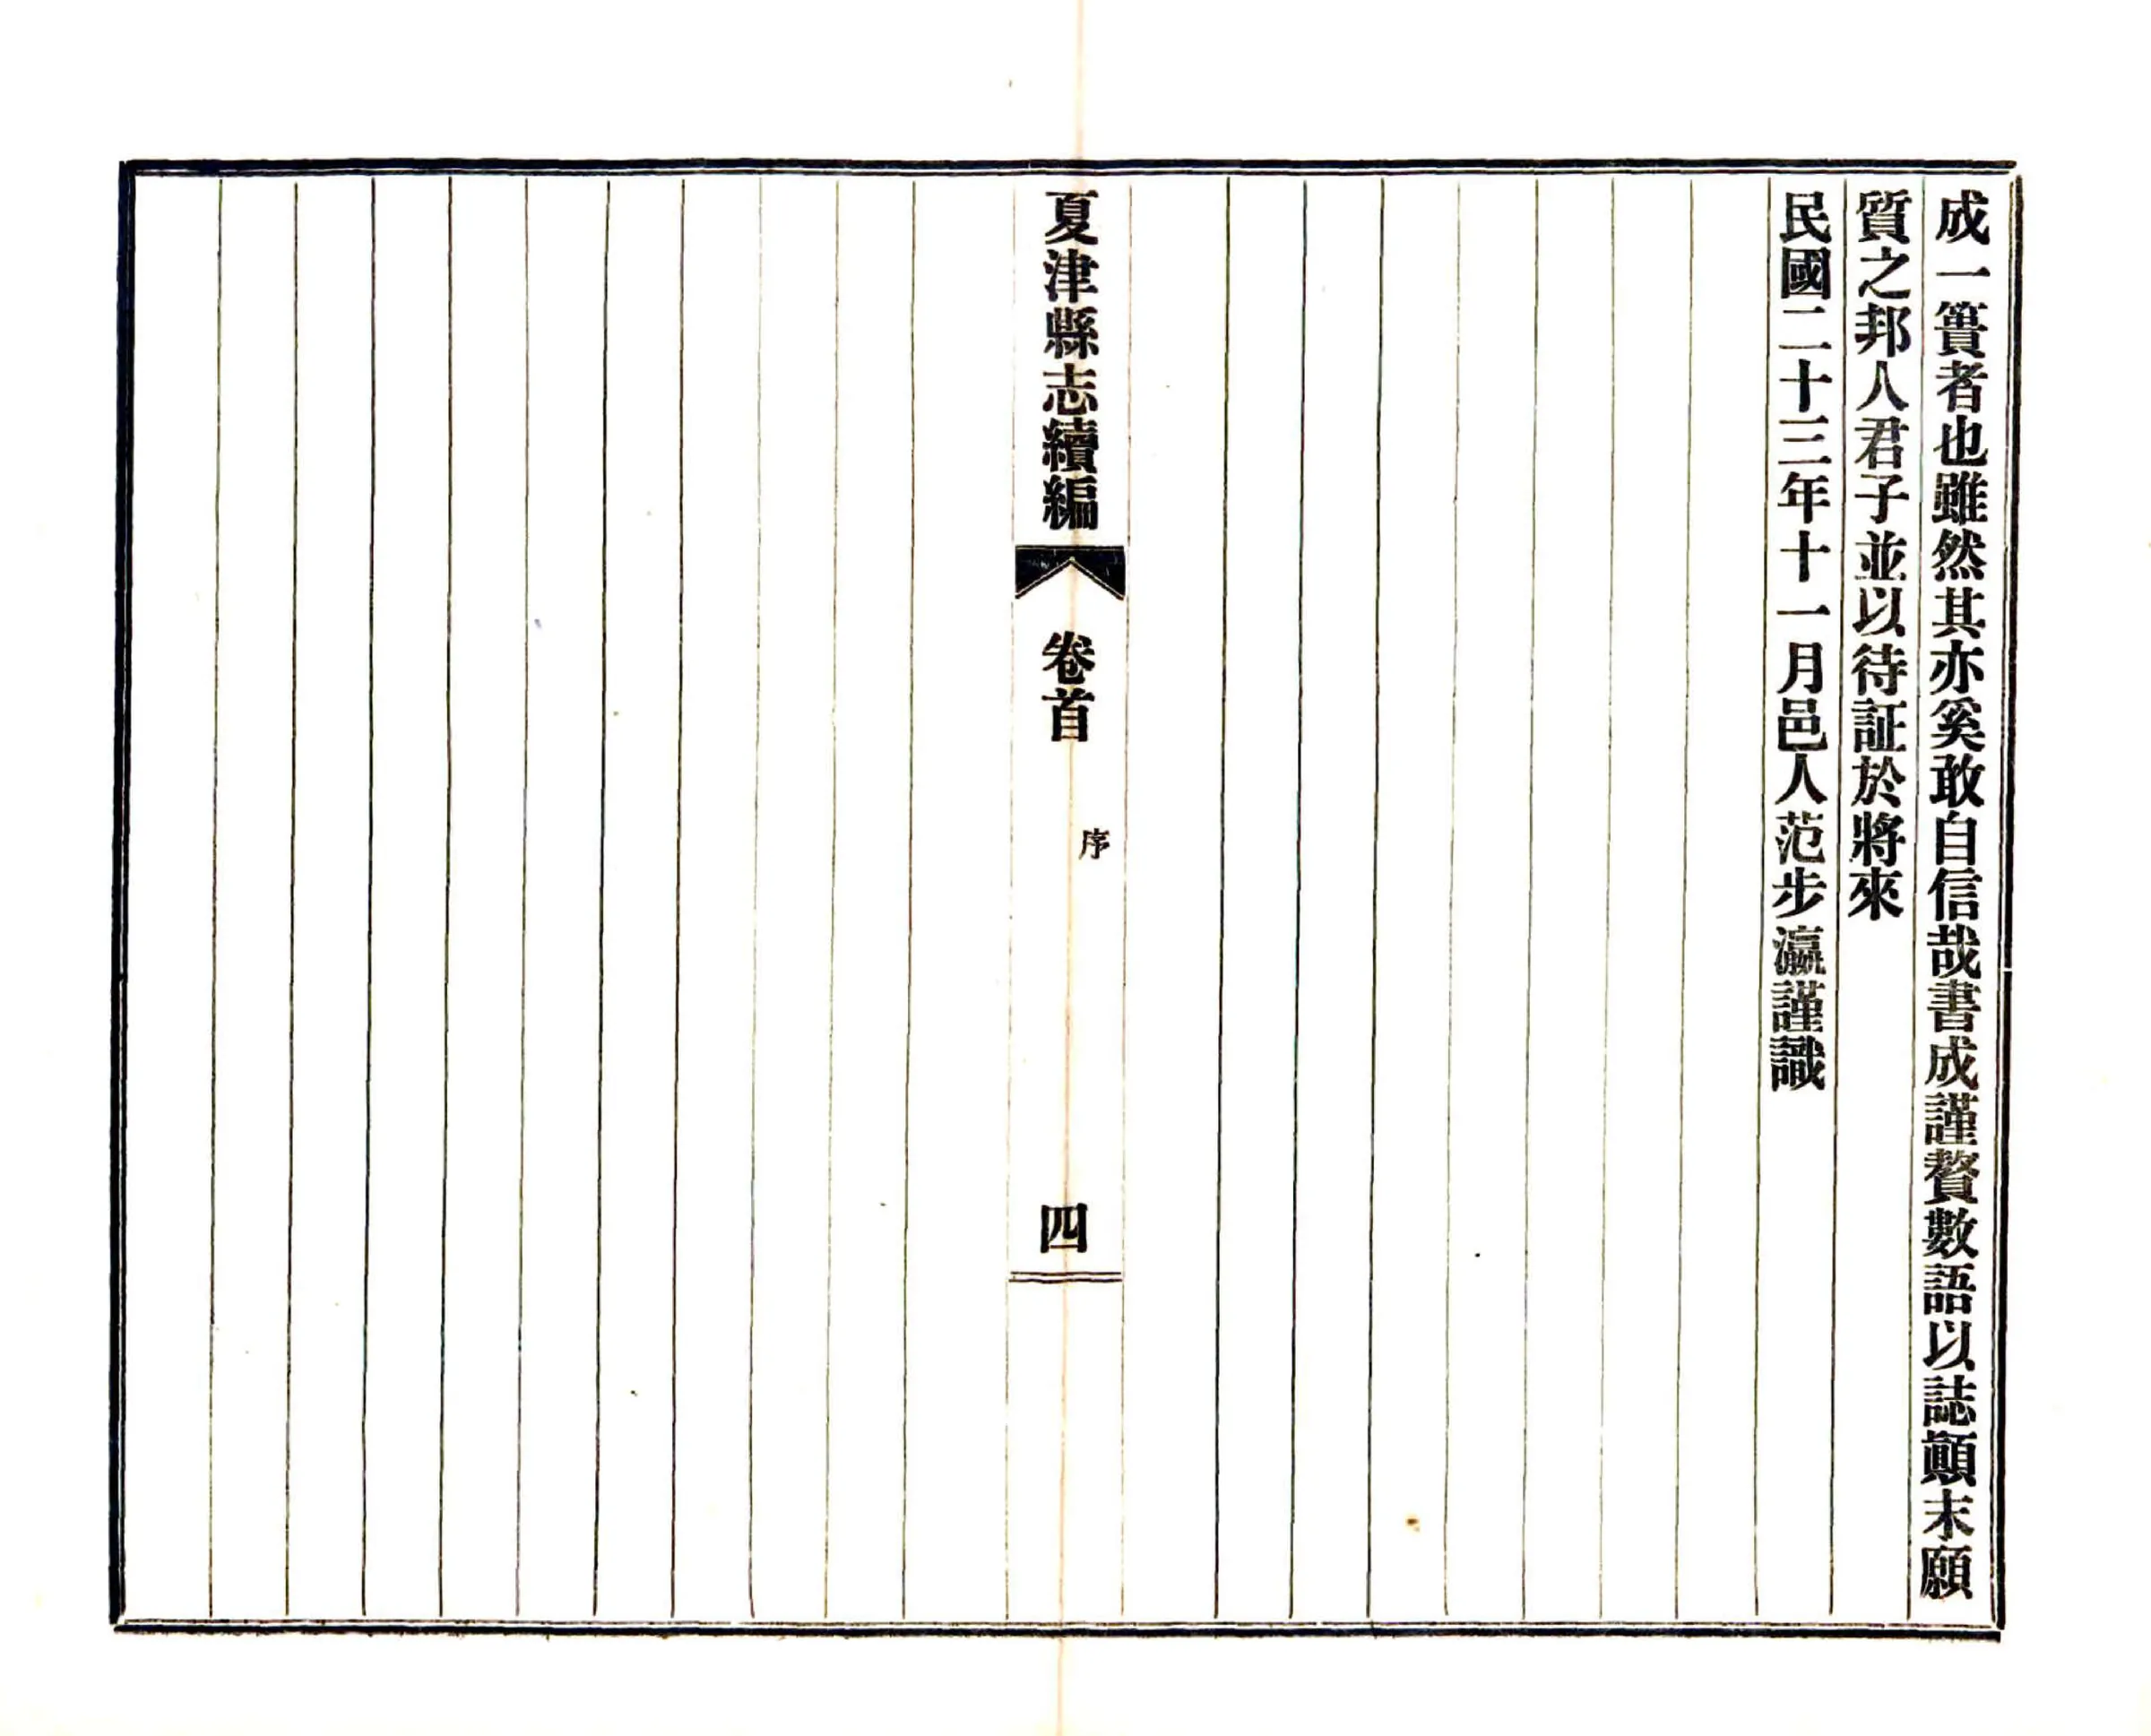 成一簣者也雖然其亦奚敢自信哉書成謹贅數語以誌顚末願
質之邦人君子並以待証於將來
民國二十三年十一月邑人范步瀛謹識
夏津縣志續編
卷首
序
四